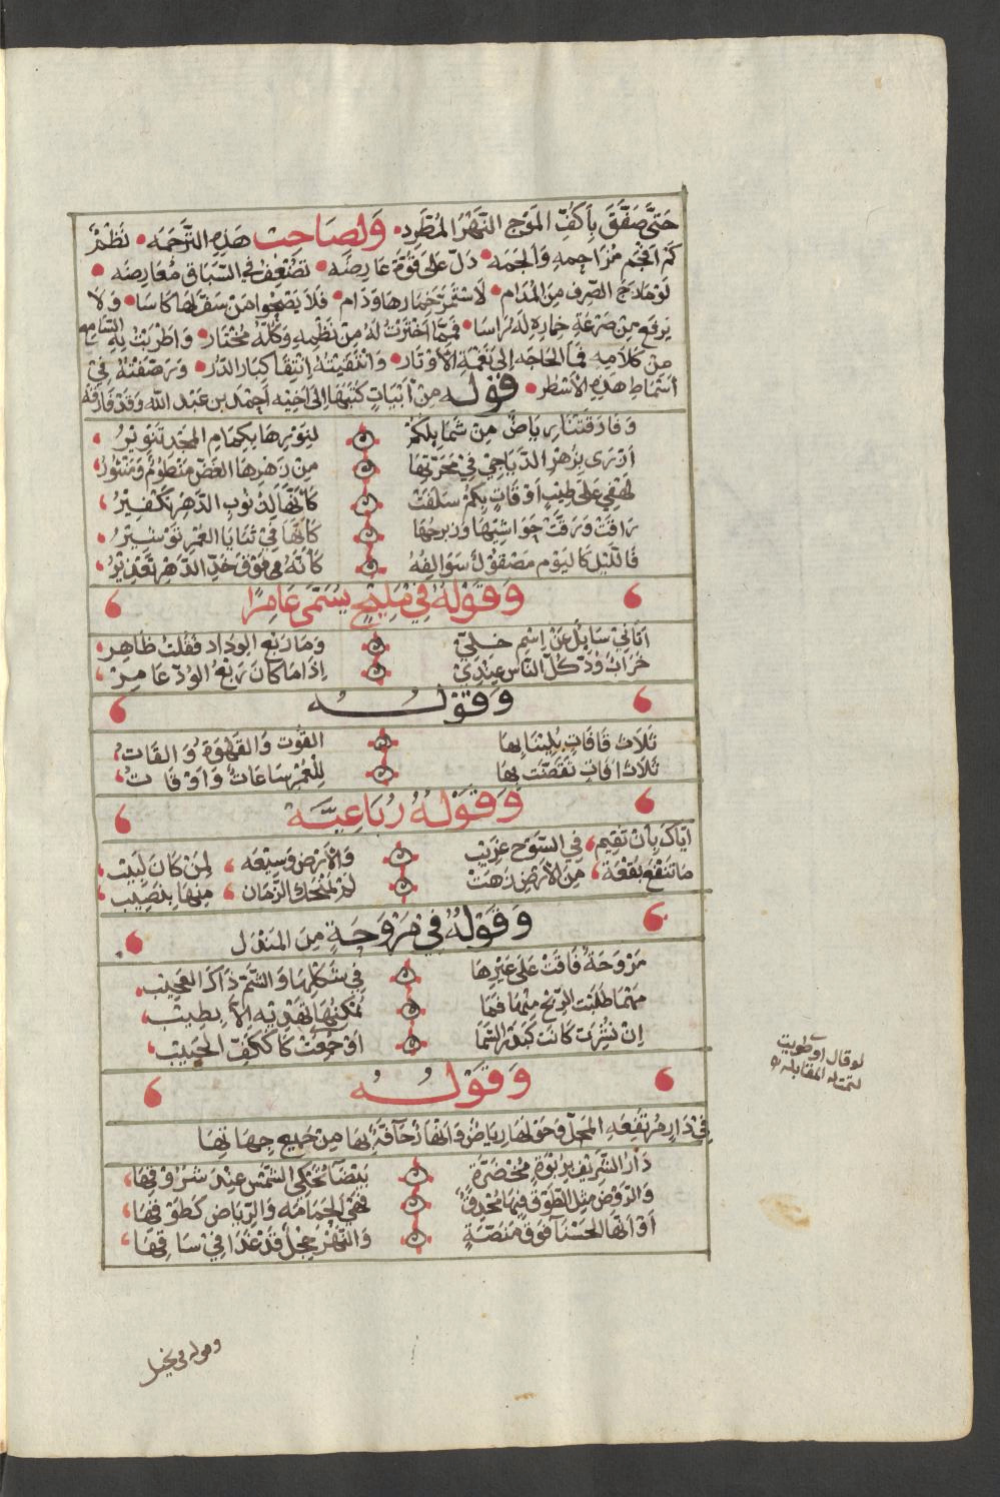 حَتَّى صَفَّقَ بِأَكُفِّ المَوْجِ النَّهْرُ المُطَّرِد • وَلصَاحِب هَذِهِ التَّرجَمَه • نَظْمٌ
كَم افْحَمَ مُزَاحِمِهِ وَالجَمَه • دَلَّ عَلى قوَّةِ عَارِضَتِه • تضْعِف في السِّبَاق مُعَارِضَه •
لوْ مَازَجَ الصِّرف مِنَ المُدَام • لَاسْتَمَرَّ خُمَارهَا وَدَام • فَلَا يَصْحُوا مَنْ سَقَى لهَا كَاسَا • وَلَا
يَرْفَع مِنْ صَرْعَةِ خُمَارِهِ لَهُ رَاسَا • فَمِمَّا اخْتَرْتُ لَهُ مِنْ نَظْمِهِ وَكُلُّهُ مُخْتَار • وَاطرَبْتُ بِهِ السَّامِع
مِنْ كَلَامِهِ فَمَا الحَاجَه إلى نَغْمَةِ الأَوْتَار • وَانْتَقَيْتُهُ انْتِقَا كِبَار الدُّرّ • وَرَصَفْتُهُ فِي
اَسْمَاطِ هَذِهِ الأَسْطُر • قَوْلُه مِنْ أَبْيَاتٍ كَتَبَهَا إِلَى أَخِيْهِ أَحْمَد بن عَبْد اللّٰه وَقَدْ فَارَقَهُ
وَفَارَقَتْنَا رِيَاضٌ مِنْ شَمَايلكُمُ لِنَوْرِهَا بِكِمَامِ المَجْدِ تَنْوِيْرُ
اَزْرَى بِزُهْرِ الدَّيَاجِي فِي مَجَرَّتِهَا مِنْ زَهْرِهَا الغَضّ مَنْظُوْمٌ وَمَنْثُوْرُ
لَهْفِي عَلى طِيْبِ أَوْقَاتٍ بِكُمُ سَلَفَتْ كَأَنَّهَا لِذُنُوْبِ الدَّهْرِ تَكْفِيْرُ
رَاقَتْ وَرَقَّتْ حَوَاشِيْهَا وَزِبرجُهَا كَأَنَّهَا فِيْ ثَنَايَا العُمْرِ تَوْشِيْرُ
فَاللَّيْل كَاليَوْم مَصْقُوْلٌ سَوَالِفُهُ كَأَنَّهُ فِي فَوْقَ خَدِّ الدَّهْرِ تَعْذِيْرُ
وَقَوْلُهُ فِي مَلِيْحٍ يُسَمَّى عَامِرًا
اَتَانِي سَايِلٌ عَنْ اِسْمِ خِلِّيْ وَمَا رَبْعُ الوِدَاد فَقُلْتُ ظَاهِر
خَرَابٌ وُدّ كُلّ النَّاس عِنْدِيْ إِذَا مَا كَانَ رَبْعُ الوُدّ عَامِرْ
وَقَوْلُه
ثَلَاثُ قَافَاتٍ بُلِيْنَا بِهَا القُوْت وَالقَهْوَة وَالقَاتُ
ثَلَاثُ افَاتٍ تَقَضَّت بِهَا لِلْعُمْرِ سَاعَاتٌ وَاَوْقَاتُ
وَقَوْلُهُ رُبَاعِيَّة
ايّاكَ بِأَنْ تقِيم، فِي السَّوْحِ غَرِيْب وَالأَرْضُ وَسِيْعَه، لِمَنْ كَانَ لَبِيْب
مَا تنْفَعْ بُقْعَة، مِنَ الأَرْضِ زَهَتْ لَمْ يَمْنَحْكَ الزَّمَان، مِنْهَا بِنَصِيْب
وَقَوْلُهُ فِي مَرْوَحَةٍ مِنَ المَنْدَل
مَرْوَحَةٌ فَاقَتْ عَلى غَيْرِهَا فِي شَكْلِهَا وَالشَّمِّ ذَاكَ العَجِيْب
مَهْمَا طَلَبْت الرِّيْح مِنْهَا فَمَا يُمْكِنُهَا تَهْدِيْهِ إِلَّا بِطِيْب
اِنْ نُشِرَت كَانَت كَبَدْر السَّمَا اَوْ جُمِعَتْ كَانَتْ كَكَفِّ الحَبِيْب
وَقَوْلُه
فِيْ دَارٍ مُرْتَفِعَةِ المَحَلّ وَحَوْلهَا رِيَاضٌ وَانْهَارٌ حَآفَّةٌ بِهَا مِنْ جَمِيع جِهَاتِهَا
دَارُ الشَّرِيْفِ بِرَبْوَةٍ مُخْضَرَّةٍ بَيْضَآءُ تَحْكِي الشَّمْس عِنْدَ شُرُوْقِهَا
وَالرَّوْضُ مِثل الطَّوْقِ فِيْهَا مُحْدِقٌ فَهْيَ الحَمَامَه وَالرِّيَاض كَطَوْقِهَا
اَوْ اَنَّهَا الحَسْنَآ فَوْقَ مَنَصَّةٍ وَالنَّهْرُ حِجْلٌ قَدْ غَدَا فِيْ سَاقِهَا
لو قال او طويت
لتمت له المقابلة
وقوله في بخيل